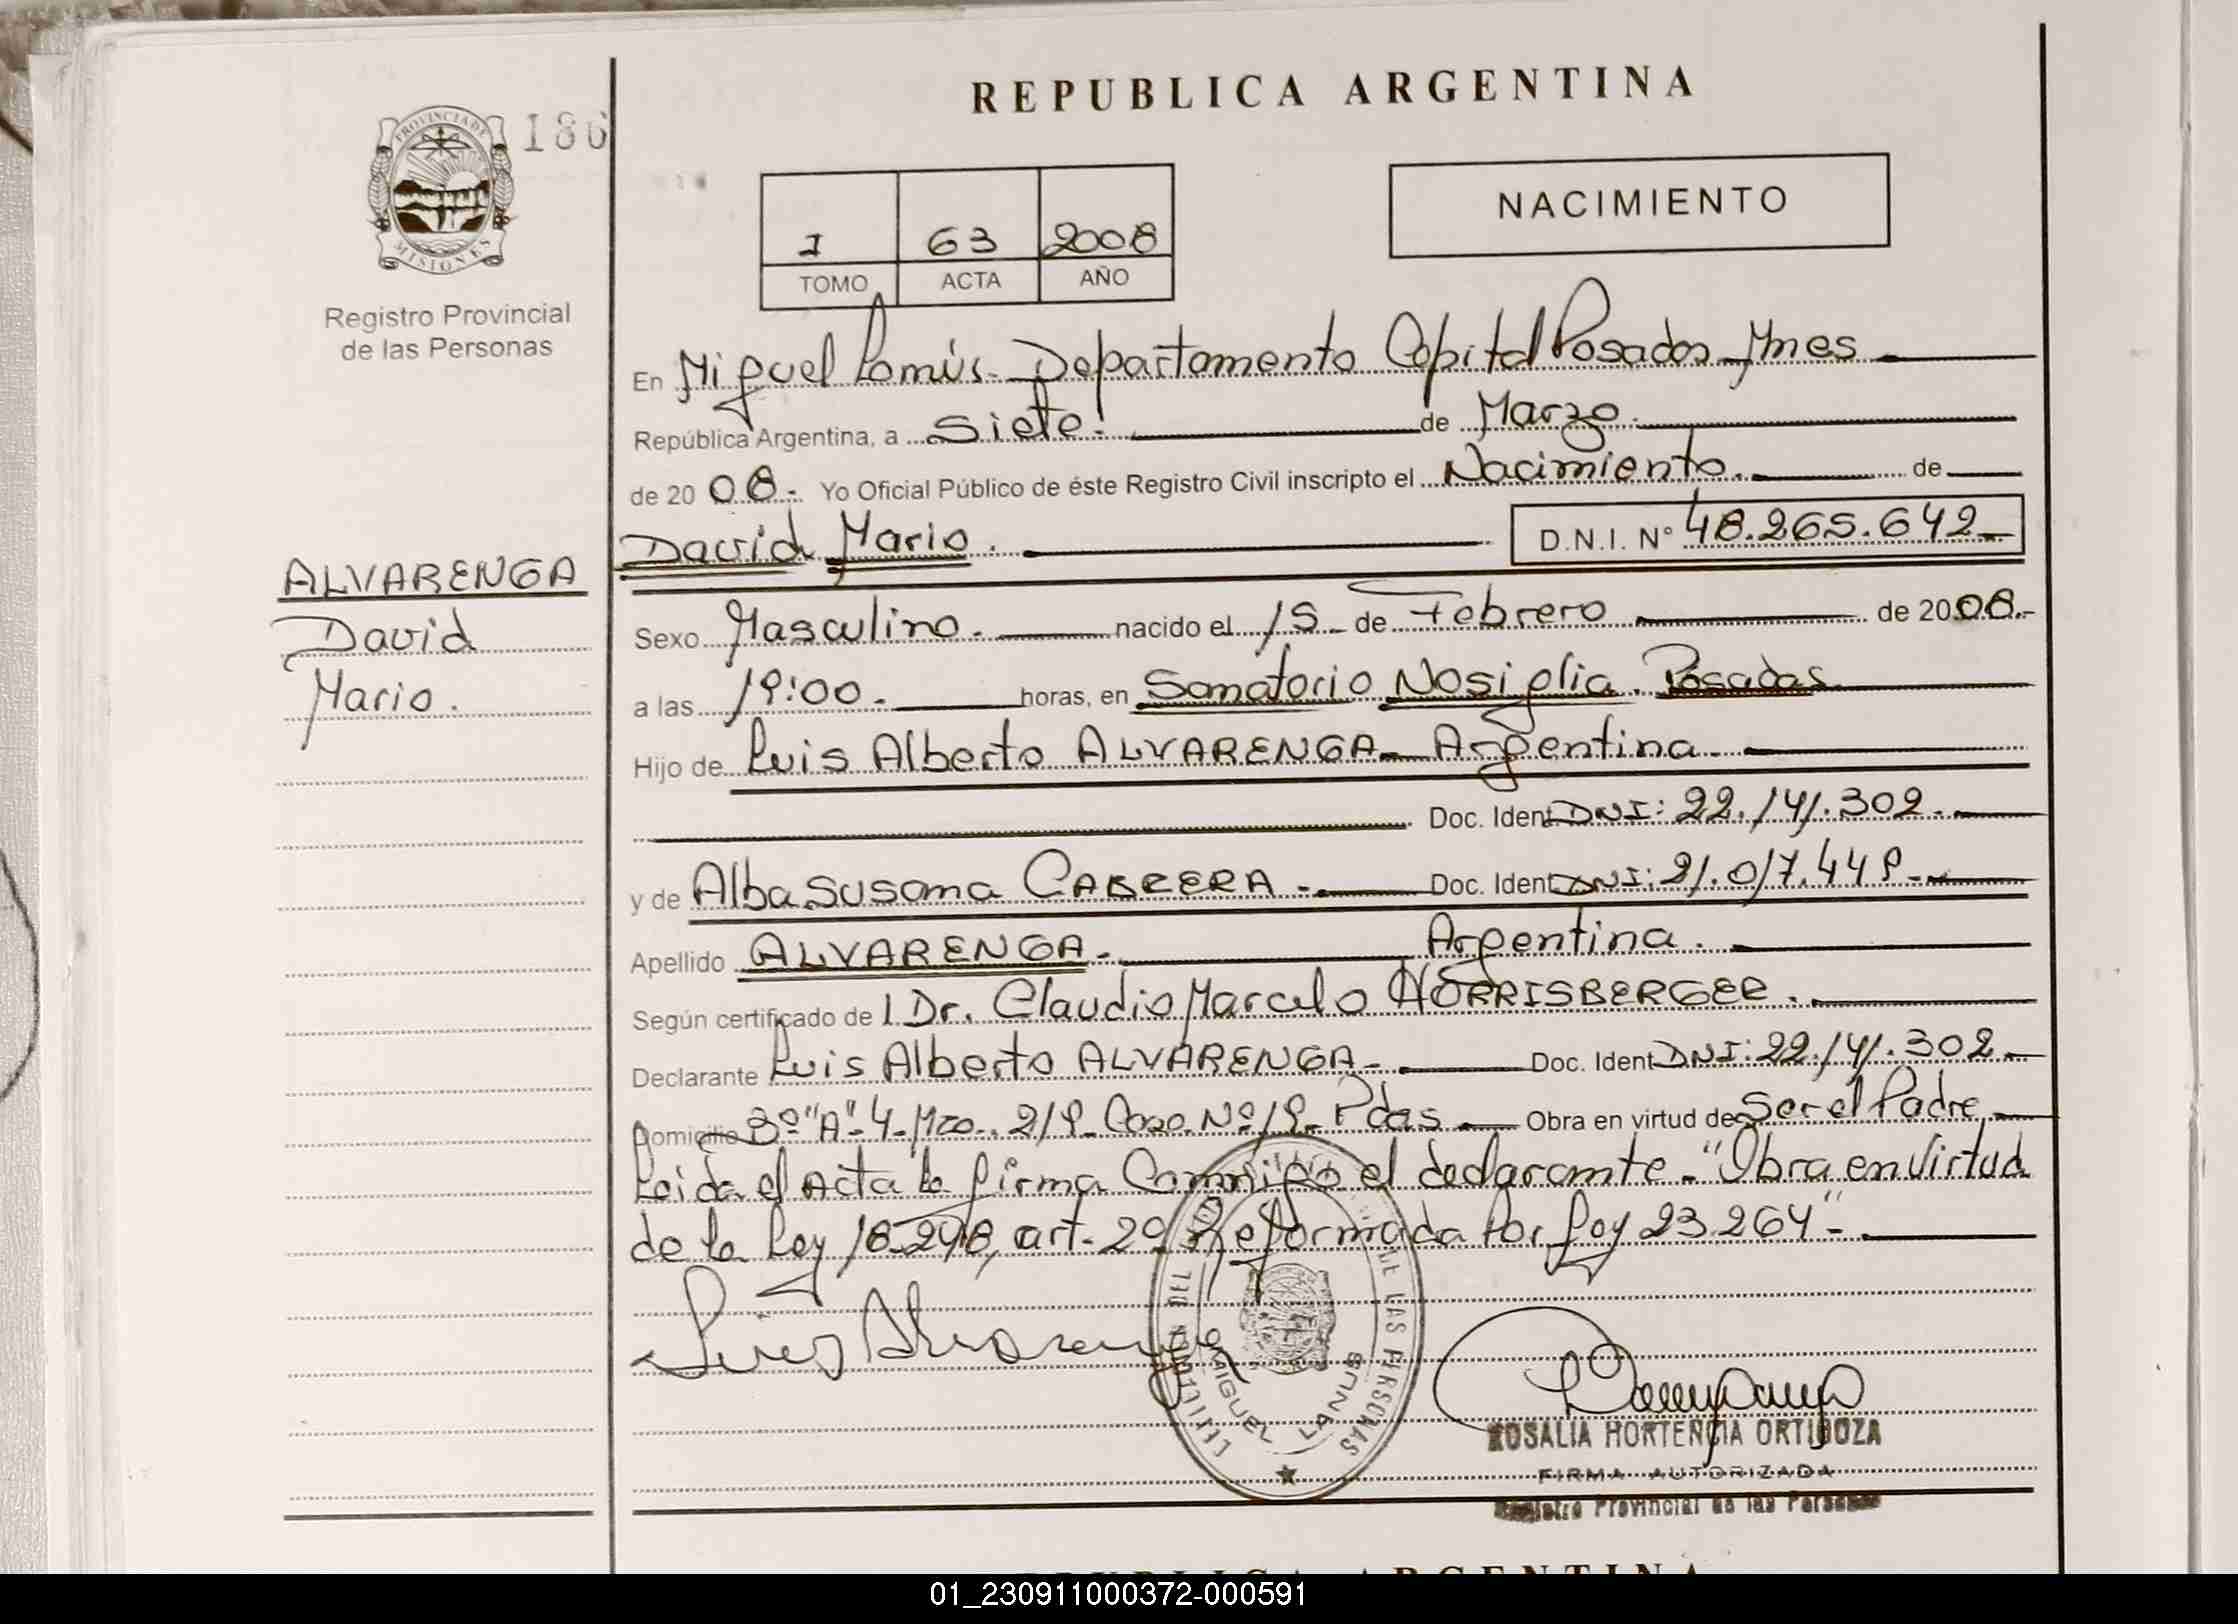 REPUBLICA ARGENTINA
PROVINCIA DE
MISIONES
186
Registro Provincial
de las Personas
I 63 2008
TOMO ACTA AÑO
NACIMIENTO
En Miguel Lanús. Departamento Capital Posadas Mnes
República Argentina, a Siete. de Marzo.
de 20 08. Yo Oficial Público de éste Registro Civil inscripto el Nacimiento. de
David Mario. D.N.I. N° 48.265.642
ALVARENGA
David
Mario.
Sexo Masculino. nacido el 15 de Febrero de 20 08.-
a las 19:00. horas, en Sanatorio Nosiglia. Posadas
Hijo de Luis Alberto ALVARENGA Argentina.
Doc. Ident DNI: 22.141.302.
y de Alba Susana CABRERA - Doc. Ident DNI: 21.017.449.
Apellido ALVARENGA. Argentina.
Según certificado del Dr. Claudio Marcelo NORRISBERGER.
Declarante Luis Alberto ALVARENGA Doc. Ident DNI: 22.141.302
Domicilio 3º "A" 4. Mza. 219 Casa Nº 19 Pdas Obra en virtud de Ser el Padre
Leida el Acta la firma Conmigo el declarante.- "Obra en virtud
de la Ley 18.248, art. 2º Reformada Por Ley 23.264"-
DEL
DE LAS PERSONAS
MIGUEL LANUS
ROSALIA HORTENCIA ORTIGOZA
FIRMA AUTORIZADA
Registro Provincial de las Personas
REPUBLICA ARGENTINA
01_230911000372-000591